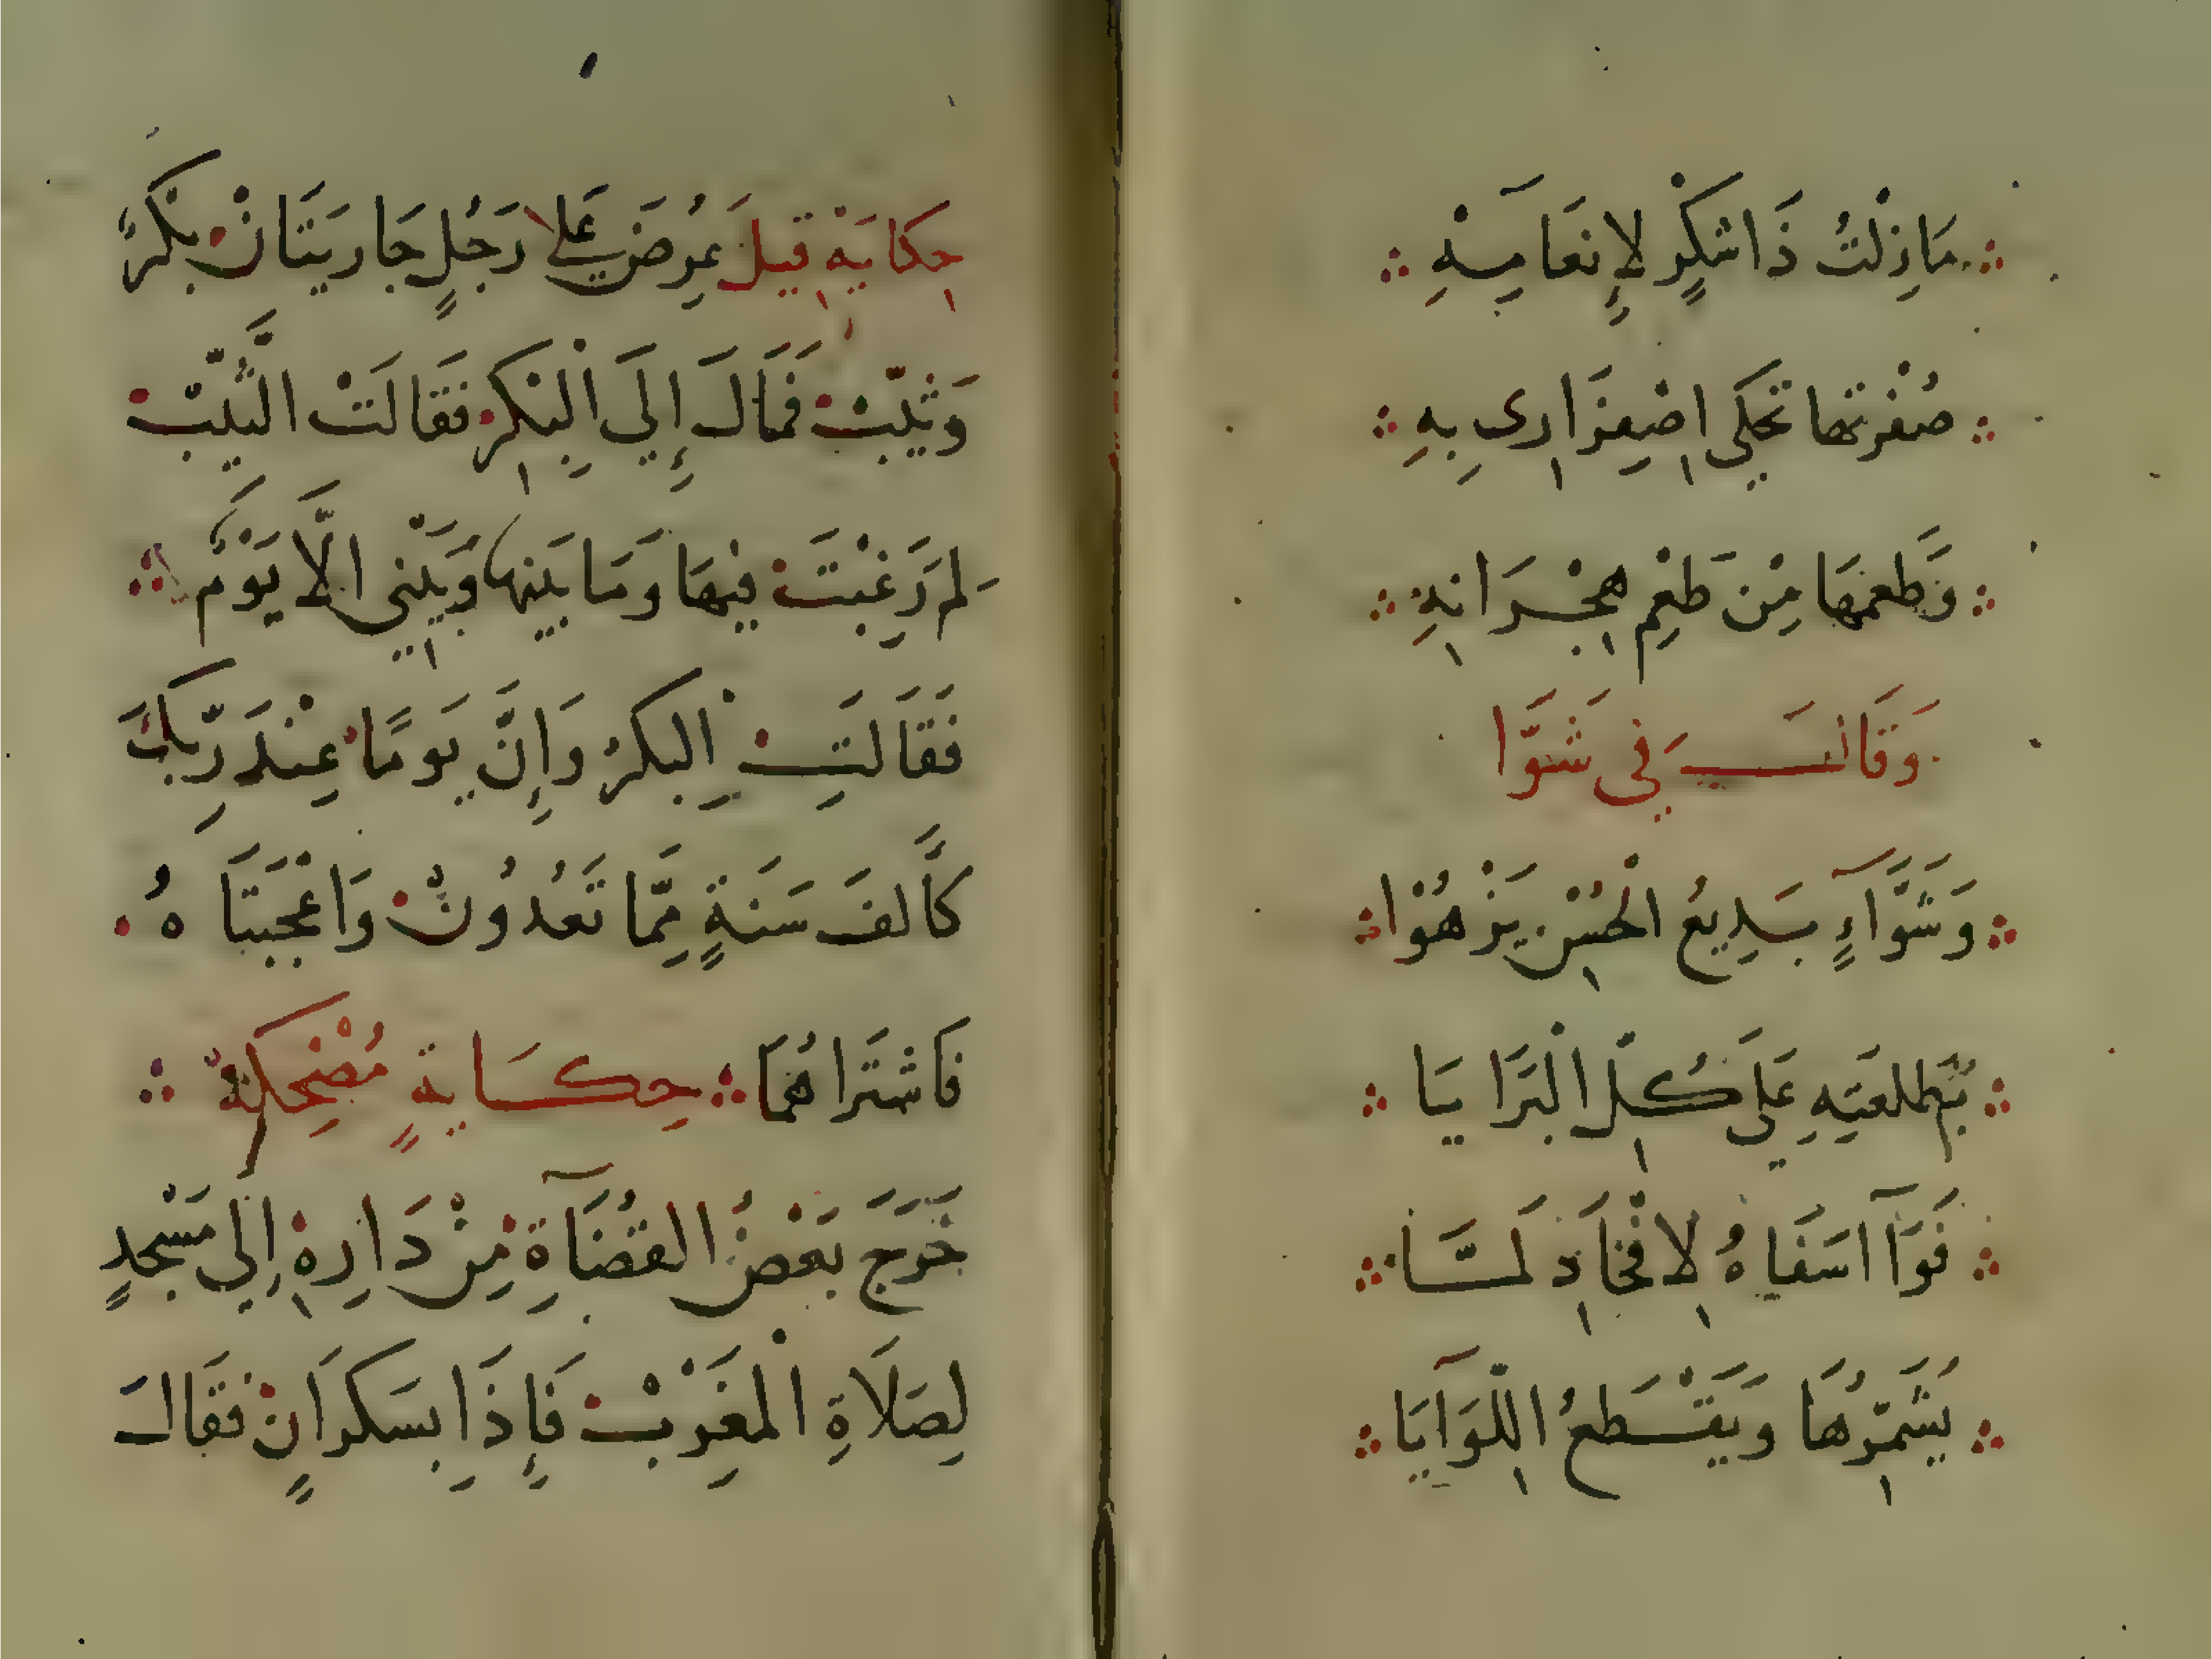 مَا زِلْتُ ذَا شكرٍ لإِنعَامِهِ
صُفْرتها تحكي اصْفِرَارى بِهِ
وَطعمهَا مِنْ طَعْمِ هِجْرَانِهِ
وَقَالَ فِي شَوَّا
وَشَوَّآءٍ بَدِيعُ الْحُسْنِ يَزْهُوْا
بِطَلعَتِهِ عَلَى كُلِّ الْبَرَايَا
فَوَآ اسَفَاهُ لِافْخَاذٍ لَــهَا
يُشَمِّرُهَا وَيَقْــطَعُ اللِّوَآيَا
حِكايَه قيلَ عُرِضَ عَلى رَجُلٍ جَاريَتَانْ بكْرٌ
وَثَيّبْ فَمَالَ إِلَى الْبِكْرْ فَقَالَتْ الثَّيِّبْ
لِمَ رَغِبْتَ فِيهَا وَمَا بَينَها وَبَيْنِي الَّا يَوْمٌ
فَقَالَتِ الْبِكرُ وَإِنَّ يَومًا عِنْدَ رَبِّكَ
كَأَلفَ سَنَةٍ مِّمَّا تَعُدُوُنْ وَاعْجَبَتَاهُ
فَاشتَراهُمَا حِكَايةٍ مُضْحِكَةٌ
خَرَجَ بَعْضُ القُضَآةِ مِنْ دَارِهْ إِلَى مَسْجدٍ
لِصَلَاةِ الْمَغِرَبْ فَإِذَا بِسَكرَانٍ فقَالَ